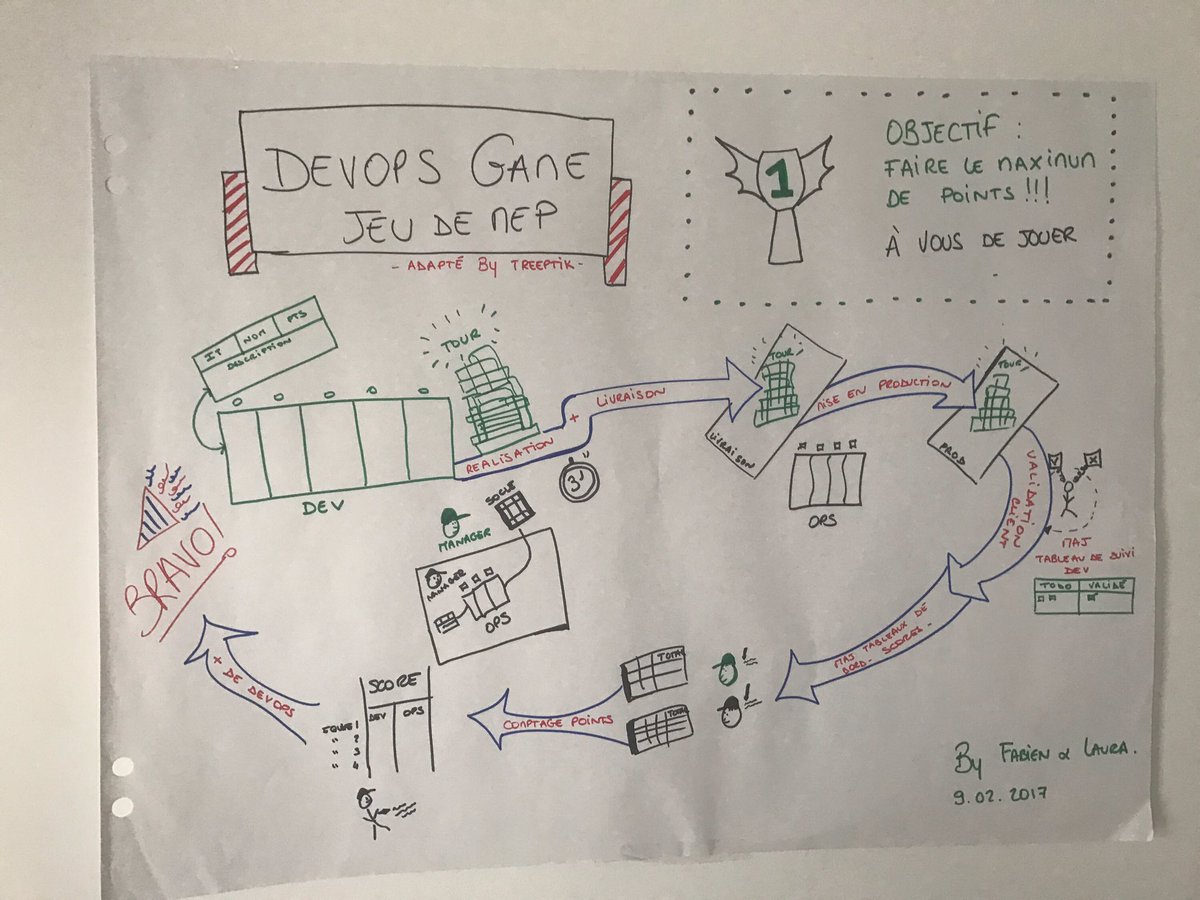 DEVOPS GAME
JEU DE MEP
- ADAPTÉ By TREEPTIK -
1
OBJECTIF :
FAIRE LE MAXIMUM
DE POINTS !!!
À VOUS DE JOUER
NOM PTS
DESCRIPTION
DEV
TOUR
REALISATION + LIVRAISON
3'
TOUR
LIVRAISON
MISE EN PRODUCTION
OPS
TOUR
PROD
VALIDATION
CLIENT
MAJ
TABLEAU DE SUIVI
DEV
TODO VALIDÉ
MANAGER
SOCLE
MANAGER
OPS
MAJ TABLEAUX DE
BORD - SCORES -
TOTAL
TOTAL
COMPTAGE POINTS
SCORE
DEV OPS
EQUIPE 1
" 2
" 3
" 4
+ DE DEVOPS
BRAVO!
By FABIEN & LAURA.
9.02.2017